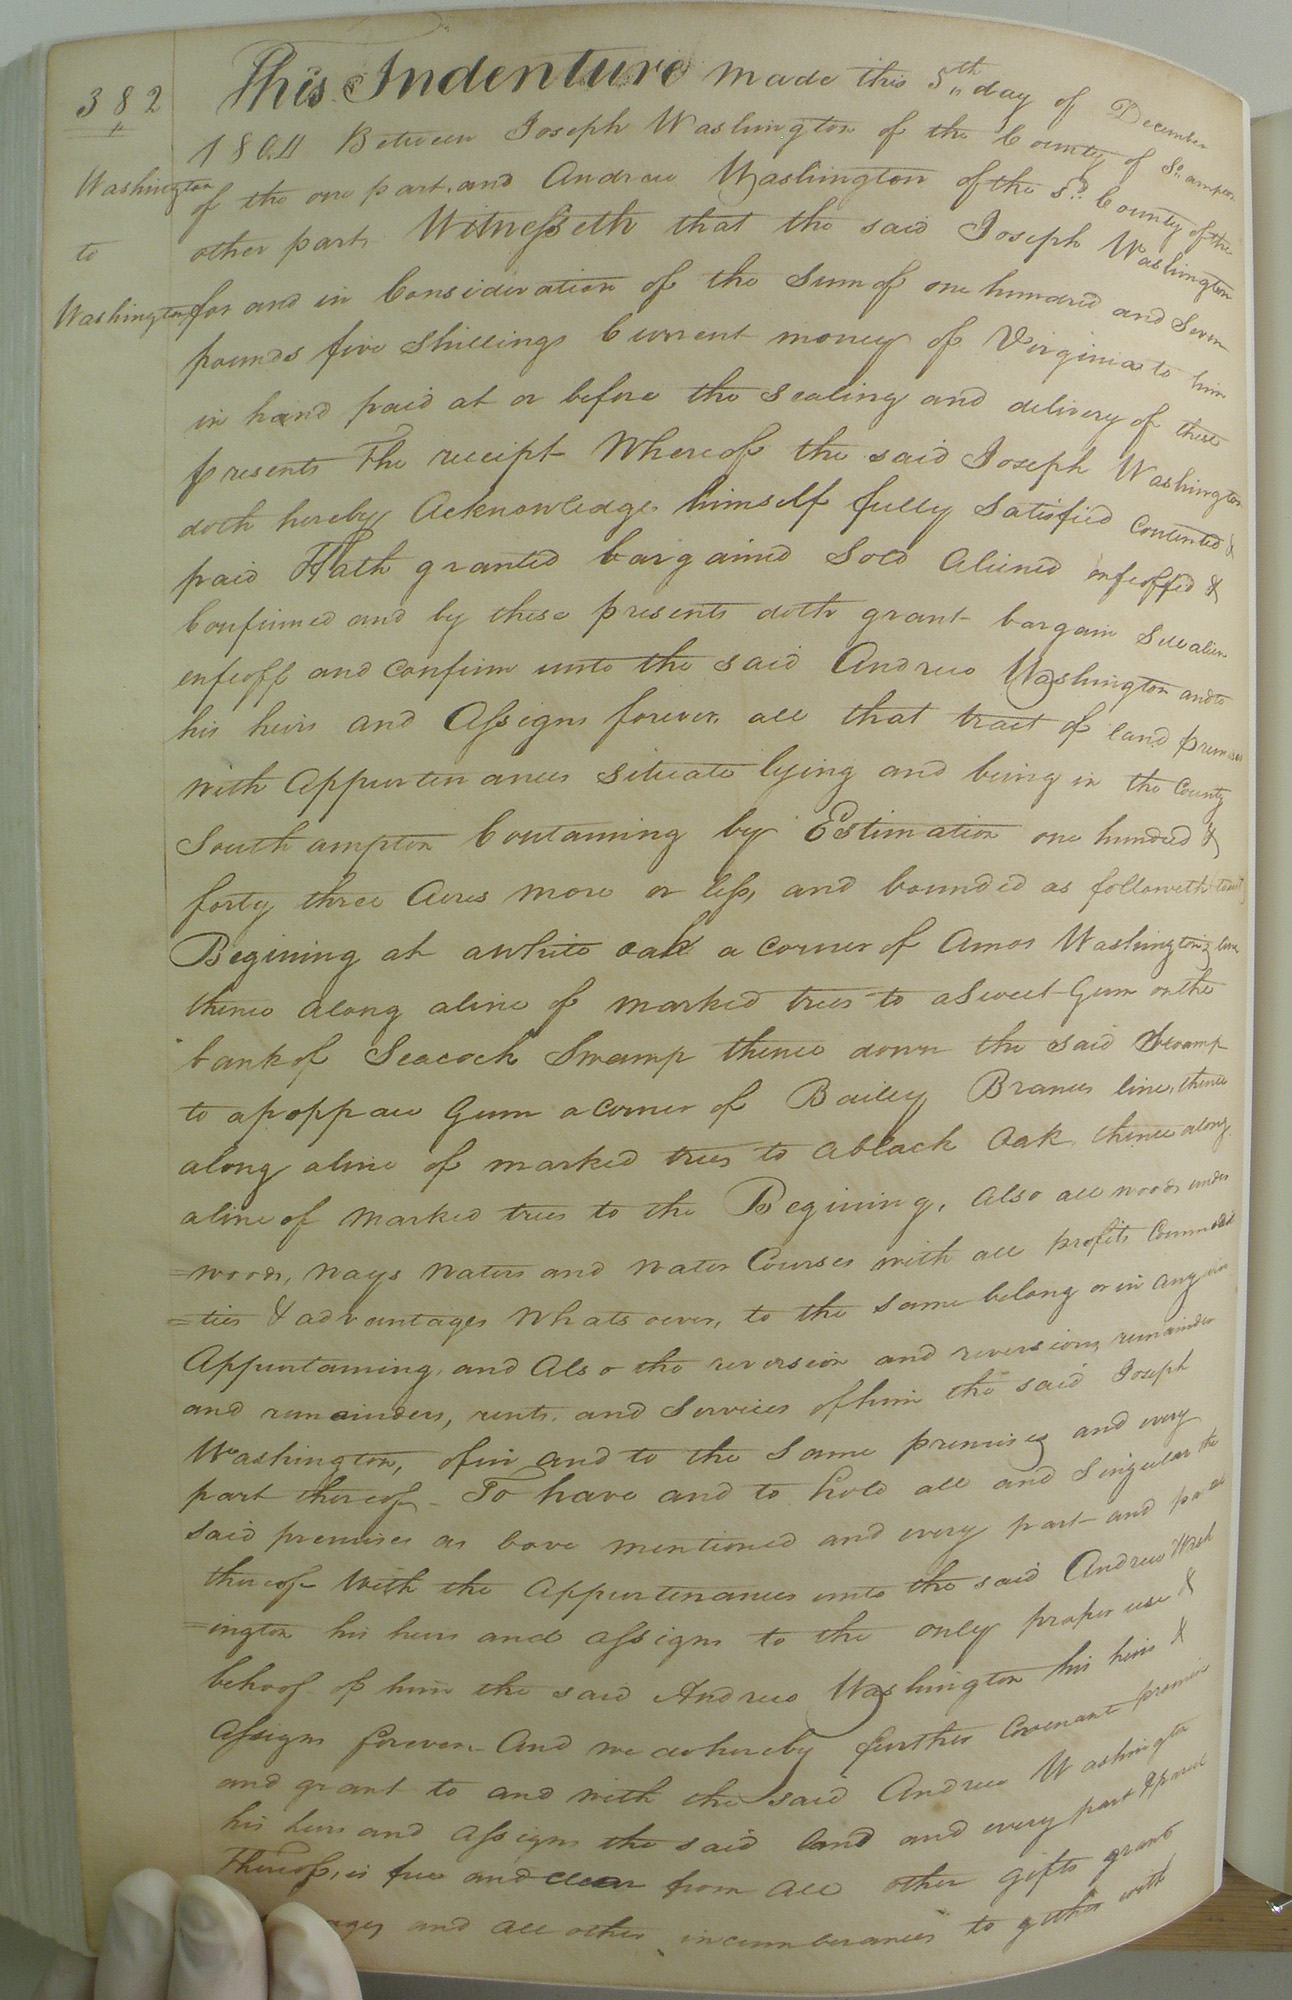 382
Washington
to
Washington
This Indenture made this 5th day of December
1804 Between Joseph Washington of the County of So. ampton
of the one part, and Andrew Washington of the sd. County of the
other part Witnesseth that the said Joseph Washington
for and in Consideration of the Sum of one hundred and Seven
pounds five Shillings Current money of Virginia to him
in hand paid at or before the sealing and delivery of these
presents The receipt Whereof the said Joseph Washington
doth hereby Acknowledge himself fully Satisfied Contented &
paid Hath granted bargained Sold Aliened enfeoffed &
Confirmed and by these presents doth grant bargain Sell alien
enfeoff and Confirm unto the said Andrew Washington and to
his heirs and Assigns forever, all that tract of land premises
with Appurtenances Situate lying and being in the County
Southampton Containing by Estimation one hundred &
forty three Acres more or less, and bounded as followeth towit
Begining at a white oak a corner of Amos Washington's line
thence along a line of marked trees to a Sweet Gum on the
bank of Seacock Swamp thence down the said Swamp
to a poppaw Gum a corner of Bailey Branes line, thence
along a line of marked trees to a black Oak, thence along
a line of marked trees to the Begining, Also all woods under
=woods, ways waters and water Courses with all profits Commodi
=ties & advantages Whatsoever, to the same belong or in any wise
Appurtaining, and Also the reversion and reversions, remainder
and remainders, rents, and Services of him the said Joseph
Washington, of in and to the Same premises and every
part thereof - To have and to hold all and Singular the
said premises as bove mentioned and every part and parcel
thereof With the Appurtenances unto the said Andrew Wash
=ington his heirs and assigns to the only proper use &
behoof of him the said Andrew Washington his heirs &
assigns forever. And we do hereby further Covenant promise
and grant to and with the said Andrew Washington
his heirs and Assigns the said land and every part & parcel
Thereof, is free and clear from all other gifts grants
and all other incumberances to gether with